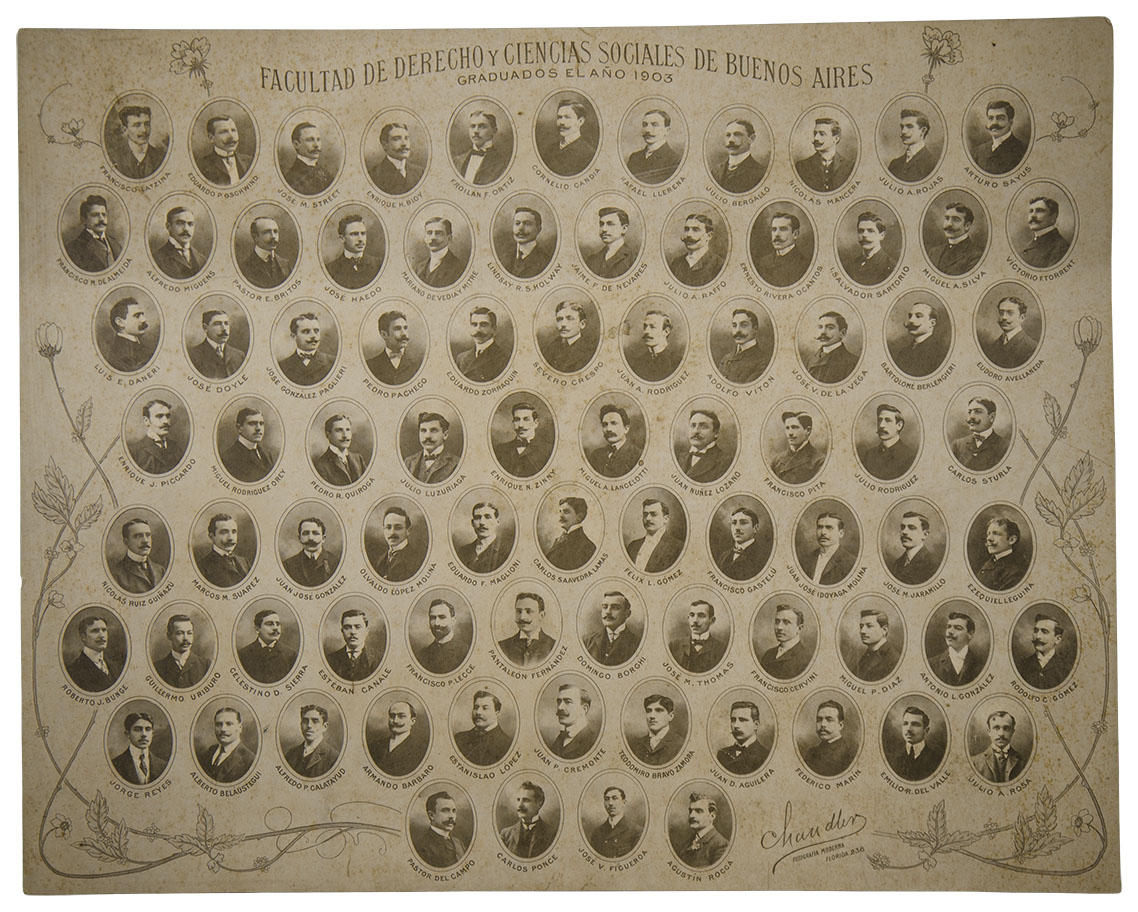 FACULTAD DE DERECHO Y CIENCIAS SOCIALES DE BUENOS AIRES
GRADUADOS EL AÑO 1903
FRANCISCO LATZINA
EDUARDO P. GSCHWIND
JOSÉ M. STREET
ENRIQUE H. BIOY
FROILAN F. ORTIZ
CORNELIO GANDIA
RAFAEL LLERENA
JULIO BERGALO
NICOLÁS MANCERA
JULIO A. ROJAS
ARTURO BAYUS
FRANCISCO M. DE ALMEIDA
ALFREDO MIGUENS
PASTOR E. BRITOS
JOSÉ HAEDO
MARIANO DE VEDIA Y MITRE
LINDSAY R. S. HOLWAY
JAIME F. DE NEVARES
JULIO A. RAFFO
ERNESTO RIVERA OCANTOS
I. SALVADOR SARTORIO
MIGUEL A. SILVA
VICTORIO F. TORRENT
LUIS E. DANERI
JOSÉ DOYLE
JOSÉ GONZALEZ PAGLIERI
PEDRO PACHECO
EDUARDO ZORRAQUIN
SEVERO CRESPO
JUAN A. RODRIGUEZ
ADOLFO VITON
JOSÉ V. DE LA VEGA
BARTOLOMÉ BERLENGIERI
EUDORO AVELLANEDA
ENRIQUE J. PICCARDO
MIGUEL RODRIGUEZ OREY
PEDRO R. QUIROGA
JULIO LUZURIAGA
ENRIQUE N. ZINNY
MIGUEL A. LANCELOTTI
JUAN NUÑEZ LOZANO
FRANCISCO PITA
JULIO RODRIGUEZ
CARLOS STURLA
NICOLÁS RUIZ GUIÑAZÚ
MARCOS M. SUAREZ
JUAN JOSÉ GONZÁLEZ
OLVALDO LÓPEZ MOLINA
EDUARDO F. MAGLIONI
CARLOS SAAVEDRA LAMAS
FÉLIX L. GÓMEZ
FRANCISCO GASTELÚ
JUAN JOSÉ IDOYAGA MOLINA
JOSÉ M. JARAMILO
EZEQUIEL LEGUINA
ROBERTO J. BUNGE
GUILLERMO URIBURO
CELESTINO D. SIERRA
ESTEBAN CANALE
FRANCISCO P. LECCE
PANTALEÓN FERNÁNDEZ
DOMINGO BORGHI
JOSÉ M. THOMAS
FRANCISCO CERVINI
MIGUEL P. DIAZ
ANTONIO L. GONZÁLEZ
RODOLFO C. GÓMEZ
JORGE REYES
ALBERTO BELAÚSTEGUI
ALFREDO P. CALATAYUD
ARMANDO BARBARO
ESTANISLAO LÓPEZ
JUAN P. CREMONTE
TEODOMIRO BRAVO ZAMORA
JUAN D. AGUILERA
FEDERICO MARIN
EMILIO R. DEL VALLE
JULIO A. ROSA
PASTOR DEL CAMPO
CARLOS PONCE
JOSÉ V. FIGUEROA
AGUSTÍN ROCCA
Chandler
FOTOGRAFIA MODERNA
FLORIDA 236